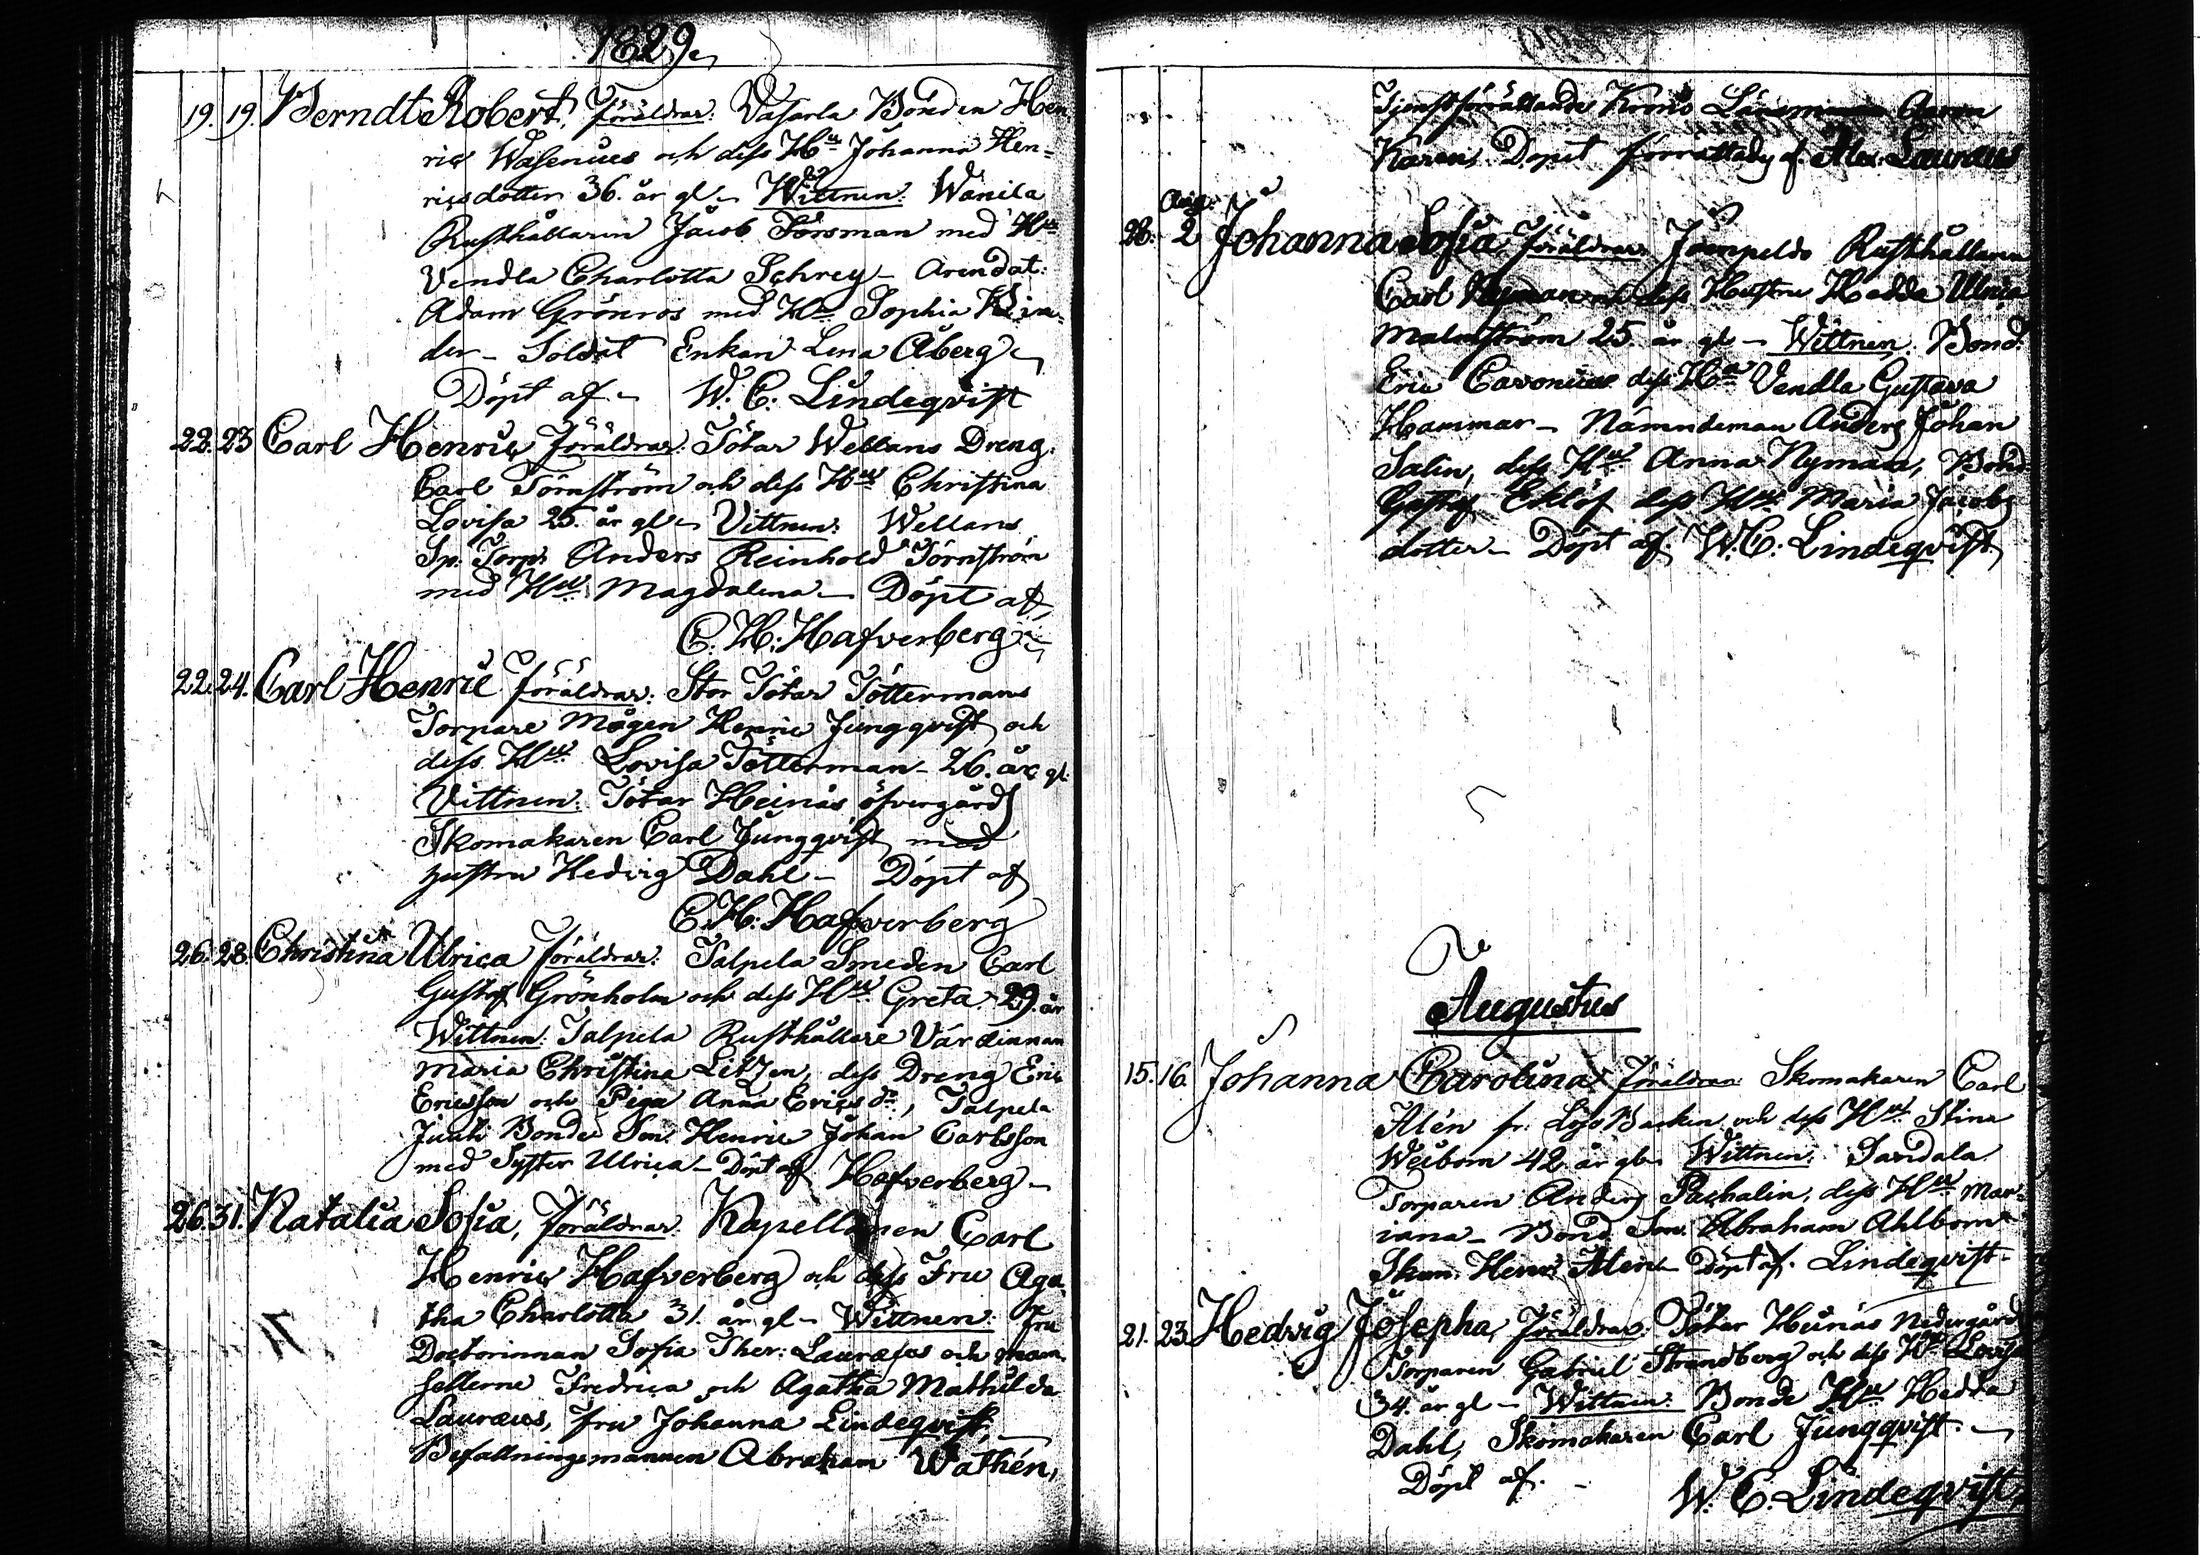 1829
19. 19. Berndt Robert, Föräldrar: Vasarla Bonden Hen
ric Wasenius och dess Hu Johanna Hen-
ricsdotter 36. år gl - Wittnen: Wanila
Rusthållaren Jacob Forsman med Hu
Vendla Charlotta Schrey - Arendat:
Adam Grönros med Hu Sophia
der - Soldat Enkan Lena Åberg
Döpt af - W. C. Lindeqvist
22. 23 Carl Henric Föräldrar: Tötar Wellans Dreng
Carl Törnström och dess Hu Christina
Lovisa 25. år gl - Vittnen: Wellans
Sp: Torp: Anders Reinhold Törnström
med Hu Magdalena - Döpt af
C. H: Hafverberg
22. 24. Carl Henric Föräldrar: Stor Tötar Töttermans
Torpare Mågen Henric Jungqvist och
dess Hu Lovisa Tötterman - 26. år gl.
Vittnen: Tötar Heinås öfvergårds
Skomakaren Carl Jungqvist med
hustru Hedvig Dahl - Döpt af
C. H: Hafverberg
26. 28. Christina Ulrica Föräldrar: Talpela Smeden Carl
Gustaf Grönholm och dess Hu Greta 29. år
Wittnen: Talpela Rusthållare Värdinnan
Maria Christina Litzen, dess Dreng Eric
Ericsson och Piga Anna Erics dr, Talpela
Juuti Bonde Son Henric Johan Carlsson
med Syster Ulrica - Döpt af Hafverberg -
26. 31. Natalia Sofia, Föräldrar: Kapellanen Carl
Henric Hafverberg och dess Fru Aga-
tha Charlotta 31. år gl - Wittnen: Fru
Doctorinnan Sofia Ther: Lauræus och Mam-
sellerne Fredrica och Agatha Mathilda
Lauræus, Fru Johanna Lindeqvist,
Befallningsmannen Abraham Wathén,
Tjenstförrättande Krono Länsman Aaron
Döpt förrättady af Alex. Lauræus
Aug:
28. 2 Johanna Sofia Föräldrar: Rusthållaren
Carl Nyman och dess Hustru Hedda Ulrica
Malmström 25. år gl - Wittnen: Bond.
Eric Cavonius dess Hu Vendla Gustava
Hammar - Nämndeman Anders Johan
Salin, dess Hu Anna Nyman, Bond
Gustaf Eklöf dess Hu Maria Jacobs
dotter - Döpt af W. C: Lindeqvist
Augustus
15. 16. Johanna Carolina Föräldrar: Skomakaren Carl
Alén fr. Löjo Backen och dess Hu Stina
Weibom 42 år gl - Wittnen: Sandala
Torparen Anders Pachalin, dess Hu Mar-
iana - Bond Son Abraham Ahlbom
Skom. Henr: Alén - Döpt af. Lindeqvist -
21. 23. Hedvig Josepha, Föräldrar: Tötar Heinås Nedergårds
Torparen Gabriel Strandberg och dess Hu Lovisa
34. år gl - Wittnen: Bonde Hu Hedda
Dahl, Skomakaren Carl Jungqvist -
Döpt af. -
W. C. Lindeqvist